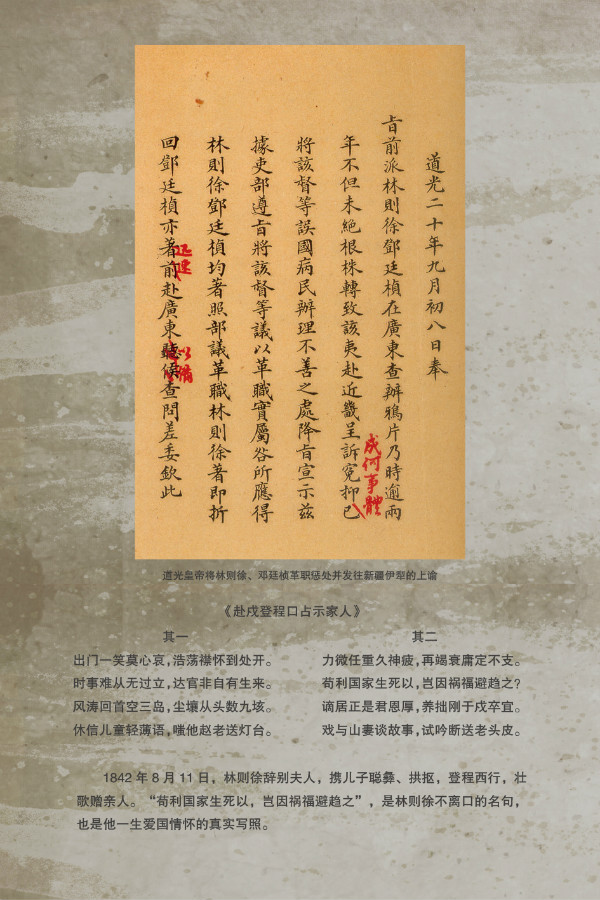 道光二十年九月初八日奉
旨前派林則徐鄧廷楨在廣東查辦鴉片乃時逾兩
年不但未絕根株轉致該夷赴近畿呈訴寃抑已
成何事體
將該督等誤國病民辦理不善之處降旨宣示茲
據吏部遵旨將該督等議以革職實屬咎所應得
林則徐鄧廷楨均著照部議革職林則徐著即折
迅速
以備
回鄧廷楨亦著前赴廣東聽候查問差委欽此
道光皇帝将林则徐、邓廷桢革职惩处并发往新疆伊犁的上谕
《赴戍登程口占示家人》
其一
出门一笑莫心哀，浩荡襟怀到处开。
时事难从无过立，达官非自有生来。
风涛回首空三岛，尘壤从头数九垓。
休信儿童轻薄语，嗤他赵老送灯台。
其二
力微任重久神疲，再竭衰庸定不支。
苟利国家生死以，岂因祸福避趋之？
谪居正是君恩厚，养拙刚于戍卒宜。
戏与山妻谈故事，试吟断送老头皮。
1842 年 8 月 11 日，林则徐辞别夫人，携儿子聪彝、拱抠，登程西行，壮
歌赠亲人。“苟利国家生死以，岂因祸福避趋之”，是林则徐不离口的名句，
也是他一生爱国情怀的真实写照。